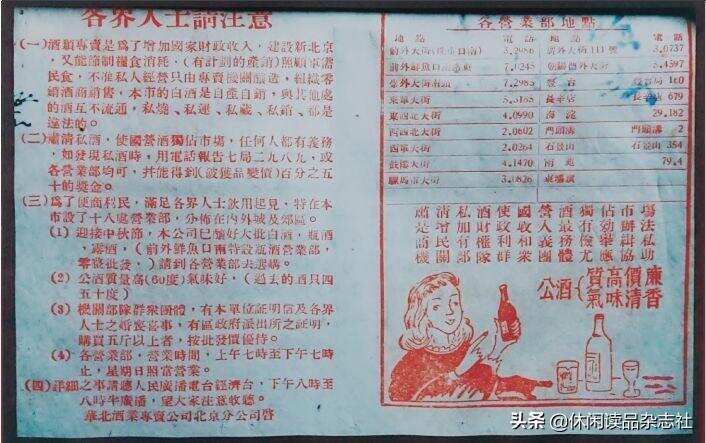 各界人士請注意
(一)酒類專賣是爲了增加國家財政收入，建設新北京，又能節制糧食消耗，(有計劃的產銷)照顧軍需民食，不准私人經營只由專賣機關釀造，組織零銷酒商銷售，本市的白酒是自產自銷，與其他處的酒互不流通，私燒、私運、私藏、私銷、都是違法的。
(二)肅清私酒，使國營酒獨佔市場，任何人都有義務，如發現私酒時，用電話報告七局二九八九，或各營業部均可，幷能得到(破獲品變價)百分之五十的獎金。
(三)爲了便商利民，滿足各界人士飲用起見，特在本市設了十八處營業部，分佈在內外城及郊區。
(1)迎接中秋節，本公司已釀好大批白酒，瓶酒，露酒，(前外鮮魚口南特設瓶酒營業部，零整批發，)請到各營業部去選購。
(2)公酒質量高(60度)氣味好，(過去的酒只四五十度)
(3)機關部隊群衆團體，有本單位証明信及各界人士之婚喪喜事，有區政府派出所之証明，購買五斤以上者，按批發價優待。
(4)各營業部，營業時間，上午七時至下午七時止，星期日照常營業。
(四)詳細之事請聽人民廣播電台經濟台，下午八時至八時半廣播，望大家注意收聽。
華北酒業專賣公司北京分公司啓
各營業部地點
地點 電話 地點 電話
前外大街 3.2986 111號 3.0737
前外鮮魚口 7.1245 朝陽門外大街
7.2985 180
東單大街 長辛店 長辛店 679
東四北大街 4.0990 海淀 29.182
西四北大街 2.0602 門頭溝 門頭溝 2
西單大街 2.1264 石景山 石景山 354
鼓樓大街 4.1470 南苑 79.4
騾馬市大街 3.1826 東壩鎮
肅清私酒使國營酒獨佔市場
是增加財政收入最有効辦法
商民有權利和義務檢舉緝私
機關部隊群衆團體尤應協助
公酒{質高價廉
氣味清香
头条 @休闲读品杂志社